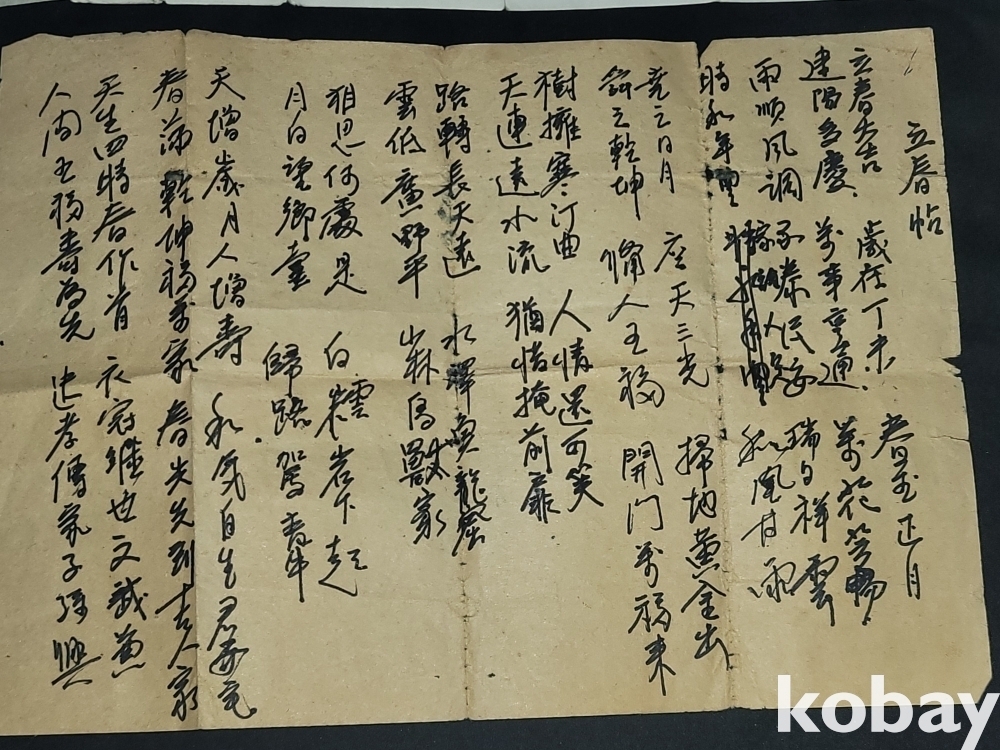 立春帖
立春大吉 歲在丁未 春至正月
建陽多慶 萬事亨通 萬花笑暢
雨順風調 民安 瑞日祥雲
時和年豊 和風甘雨
堯之日月 座天三光 掃地黃金出
舜之乾坤 備人五福 開門萬福來
樹擁寒汀曲 人情還可笑
天連遠水流 猶惜掩前扉
路轉長天遠 水澤魚龍窟
雲低廣野平 山林鳥獸家
相思何處是 白雲岩下起
月白望鄉臺 歸路駕青牛
天增歲月人增壽 和氣自生君子宅
春滿乾坤福滿家 春光先到吉人家
天生四時春作首 衣冠繼世文武兼
人間五福壽為先 忠孝傳家子孫興
kobay